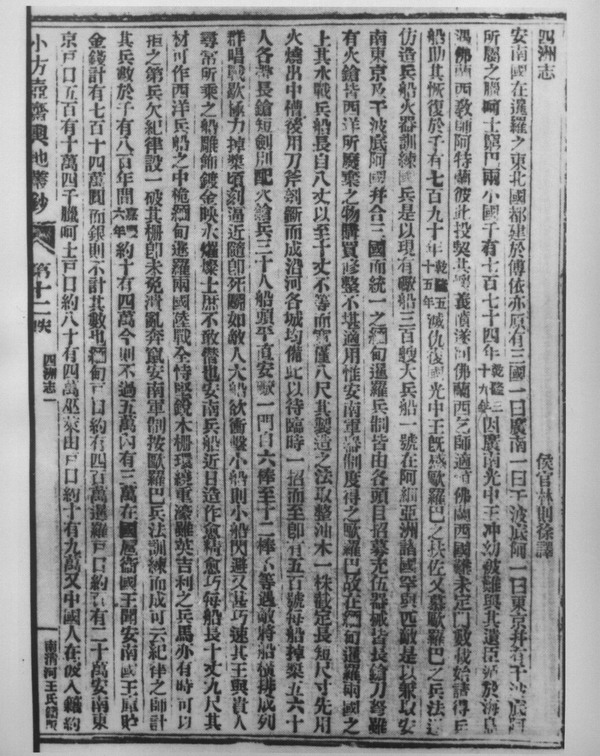 四洲志
侯官林則徐譯
安南國在暹羅之東北國都建於傅依亦原有三國一曰廣南一曰干波底阿一曰東京并有干波底阿
所屬之臘呵士兩小國千有七百七十四年乾隆三十九年因廣南光中王冲幼被難與其遺臣
遇佛蘭西教師阿特蘭彼此投契其遂佛蘭西乞師適佛蘭西國難未定數載始請得兵
船助其恢復於千有七百九十年乾隆五十五年滅仇復國光中王既感歐羅巴之扶佐又慕歐羅巴之兵法
仿造兵船火器訓練國兵是以現有戰船三百艘大兵船一號在阿細亞洲諸國罕與匹敵是以兼以安
南東京及干波底阿國并合三國而統一之緬甸暹羅兵制皆由各頭目招募充伍器械皆長鎗刀雖
有火鎗皆西洋所廢棄之物購買修整不堪適用惟安南軍器制度得之歐羅巴故在緬甸暹羅兩國之
上其水戰兵船長自八丈以至十丈不等面寬僅八尺其製造之法取整油木一株截定長短尺寸先用
火燒出中槽後用刀斧剔斲而成沿河各城均備此以待臨時一招而至即有五百號每船掉槳五六十
人各帶長鎗短劍別配火鎗兵三十人船頭平直安礮一門自六棒至十二棒不等遇敵將船橫排成列
群唱戰歌極力掉槳頃刻逼近隨即死鬬如敵人大船欲衝擊小船則小船閃避又甚巧速其王與貴人
尋常所乘之船雕飾鍍金映水燿燦士庶不敢僭也安南兵船近日造作愈精愈巧每船長十丈九尺其
材可作西洋兵船之中桅緬甸暹羅兩國陸戰全恃堅銳木柵環繞重濠雖英吉利之兵馬亦有時可以
拒之第兵欠紀律設一破其柵即未免潰亂奔竄安南軍制按歐羅巴兵法訓練而成可云紀律之師計
其兵數於千有八百年間嘉慶六年約十有四萬今則不過五萬內有三萬在國應衛國王聞安南國王庫貯
金錢計有七百十四萬圓而銀則不計其數也緬甸戶口約有四百萬暹羅戶口約有二十萬安南東
京戶口五百有十萬四千臘呵士戶口約八十有四萬巫來由戶口約十有九萬又中國人在彼入籍約
小方壺齋輿地叢鈔
第十二帙
四洲志一
南清河王氏